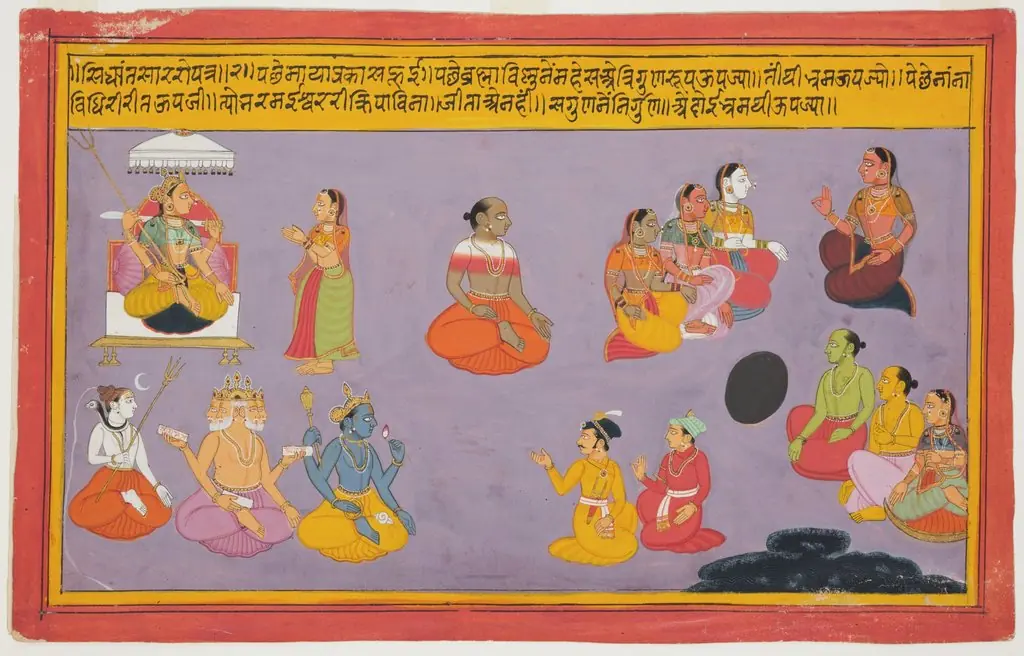 ॥सिद्धांतसाररोपत्र॥२॥ पछेमायाप्रकास हुई॥ पछेब्रह्मा विस्नुनेंमहेसश्रेत्रिगुणरूपऊपज्या॥ तीथीभ्रमऊपज्यो॥ पेछेनांना
विधिरीरीतऊपजी॥ त्योभरमईश्वररीक्रिपाविना॥ जीताश्रेनही॥ सगुणनेंनिर्गुण॥ श्रेदोईभ्रमथीऊपज्या॥